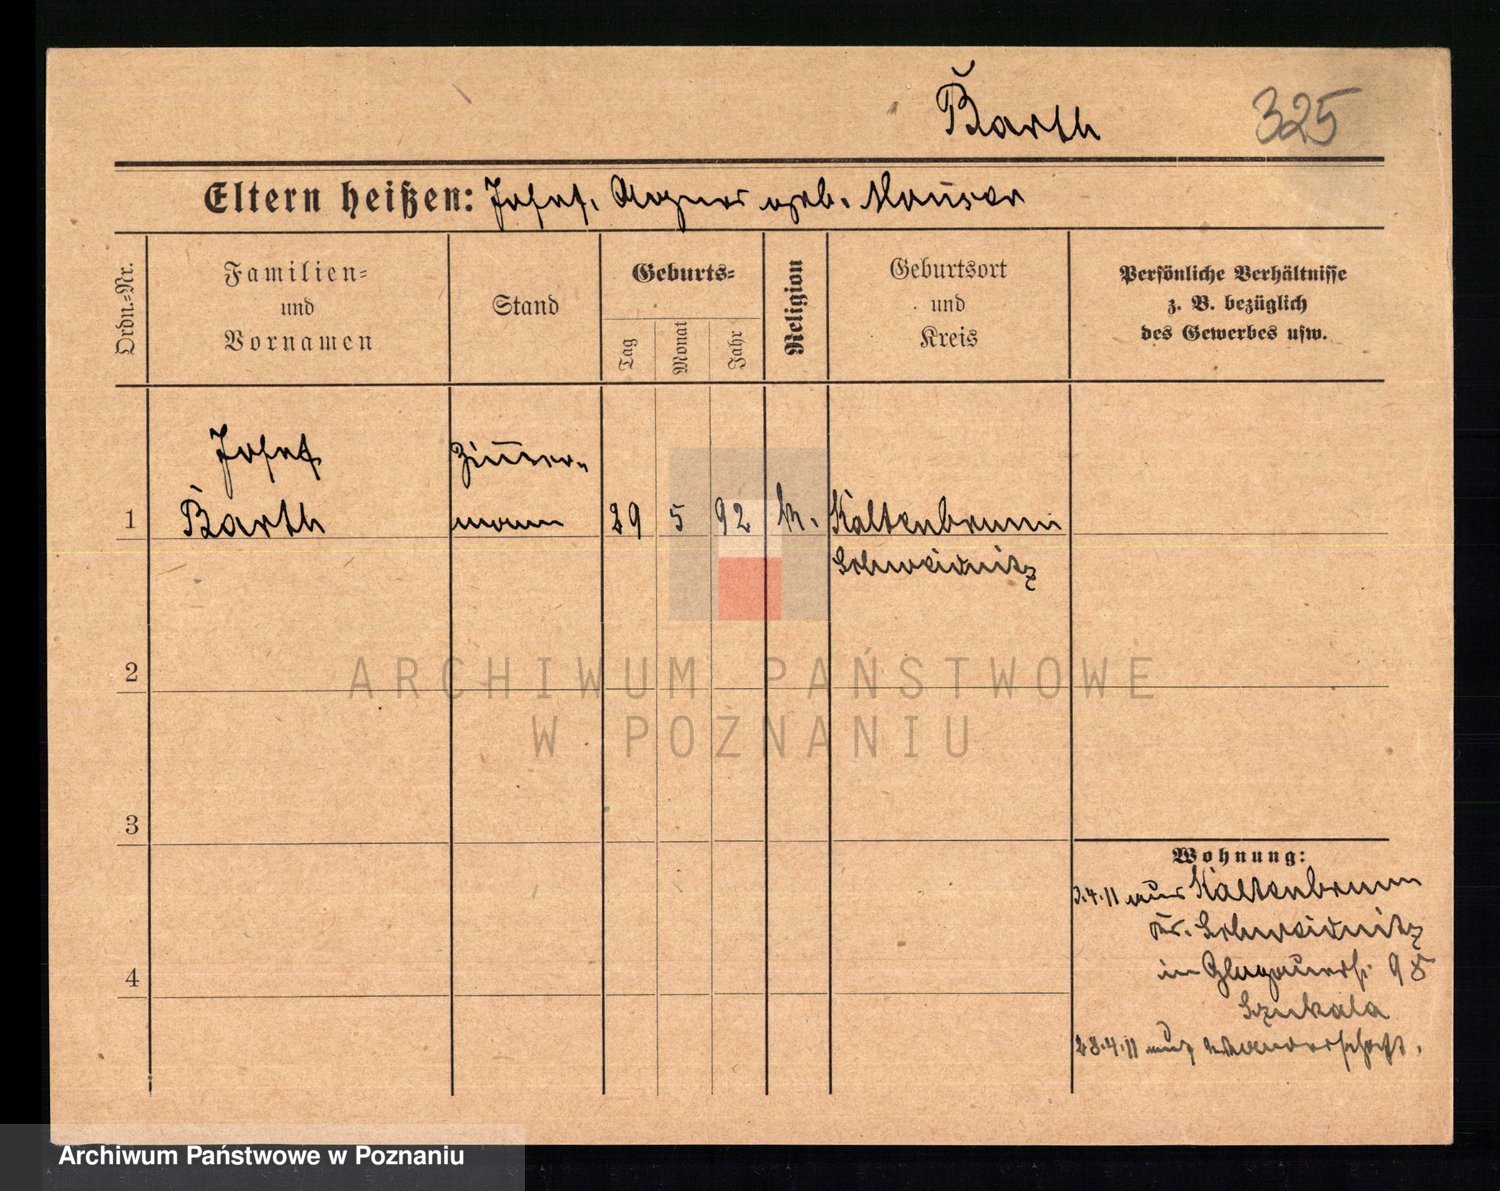 Barth
325
Eltern heißen: Josef. Agnes geb. Mauser
Ordn.=Nr.
Familien=
und
Vornamen
Stand
Geburts=
Tag
Monat
Jahr
Religion
Geburtsort
und
Kreis
Persönliche Verhältnisse
z. B. bezüglich
des Gewerbes usw.
Josef
Zim̅er-
1 Barth mann 29 5 92 k. Kaltenbrunn
Schweidnitz
2
3
4
Wohnung:
3.4.11 aus Kaltenbrunn
Kr. Schweidnitz
in Glogauerstr.
Szukala
23.4.11 auf Wanderschaft.
ARCHIWUM PAŃSTWOWE
W POZNANIU
Archiwum Państwowe w Poznaniu